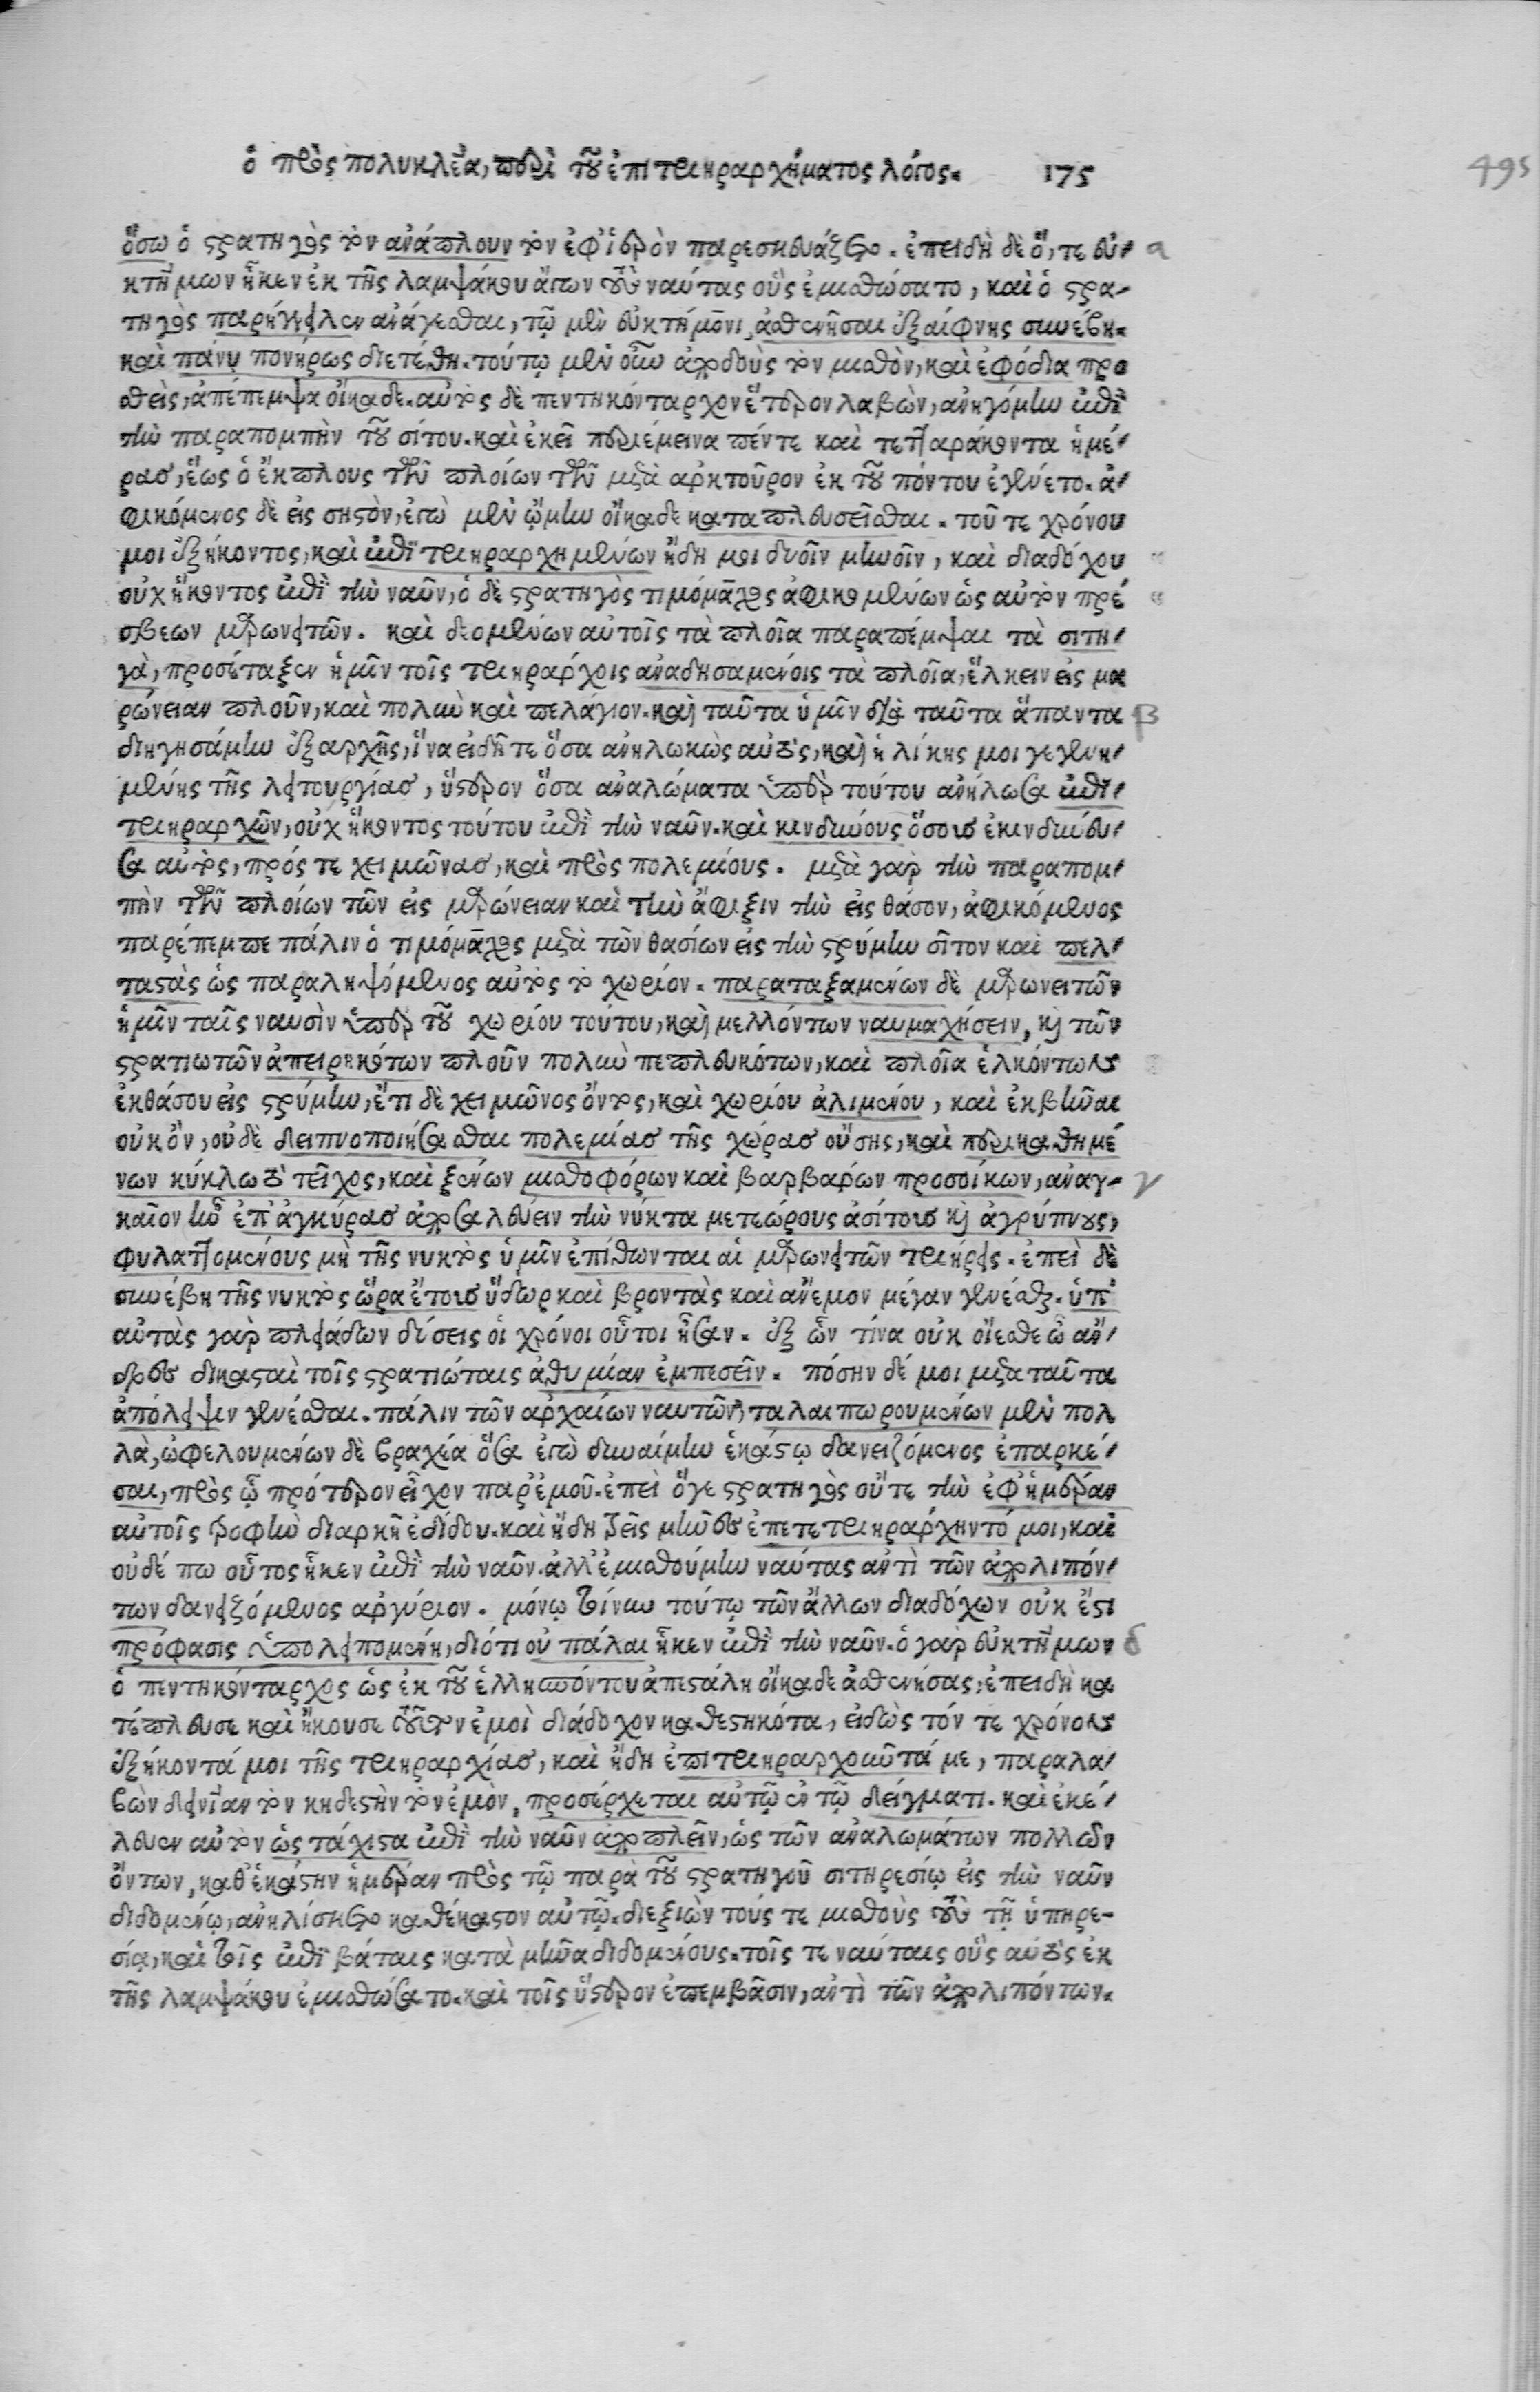 ὁ πρὸς πολυκλέα, περὶ τοῦ ἐπιτριηραρχήματος λόγος. 175
495
ὅσω ὁ στρατηγὸς τὸν ἀνάπλουν τὸν ἐφ' ἱερὸν παρεσκευάζετο. ἐπειδὴ δὲ ὅ, τε εὐ- α
κτήμων ἧκεν ἐκ τῆς λαμψάκου ἄγων τοὺς ναύτας οὓς ἐμισθώσατο, καὶ ὁ στρα-
τηγὸς παρήγγειλεν ἀνάγεσθαι, τῷ μὲν εὐκτήμονι ἀσθενῆσαι ἐξαίφνης συνέβη.
καὶ πάνυ πονήρως διετέθη. τούτῳ μὲν οὖν ἀποδοὺς τὸν μισθὸν, καὶ ἐφόδια προ
σθεὶς, ἀπέπεμψα οἴκαδε. αὐτὸς δὲ πεντηκόνταρχον ἕτερον λαβὼν, ἀνηγόμην ἐπὶ
τὴν παραπομπὴν τοῦ σίτου. καὶ ἐκεῖ περιέμεινα πέντε καὶ τετταράκοντα ἡμέ-
ρας, ἕως ὁ ἔκπλους τῶν πλοίων τῶν μετὰ ἀρκτοῦρον ἐκ τοῦ πόντου ἐγένετο. ἀ-
φικόμενος δὲ εἰς σηστὸν, ἐγὼ μὲν ᾤμην οἴκαδε καταπλευσεῖσθαι. τοῦ τε χρόνου
μοι ἐξήκοντος, καὶ ἐπιτετριηραρχημένων ἤδη μοι δυοῖν μηνοῖν, καὶ διαδόχου
οὐχ ἥκοντος ἐπὶ τὴν ναῦν, ὁ δὲ στρατηγὸς τιμόμαχος ἀφικομένων ὡς αὐτὸν πρέ
σβεων μαρωνειτῶν. καὶ δεομένων αὐτοῖς τὰ πλοῖα παραπέμψαι τὰ σιτη-
γὰ, προσέταξεν ἡμῖν τοῖς τριηράρχοις ἀναδησαμένοις τὰ πλοῖα, ἕλκειν εἰς μα
ρώνειαν πλοῦν, καὶ πολὺ καὶ πελάγιον. καὶ ταῦτα ὑμῖν διὰ ταῦτα ἅπαντα β
διηγησάμην ἐξαρχῆς, ἵνα εἰδῆτε ὅσα ἀνηλωκὼς αὐτὸς, καὶ ἡλίκης μοι γεγενη-
μένης τῆς λειτουργίας, ὕστερον ὅσα ἀναλώματα ὑπὲρ τούτου ἀνήλωσα ἐπι-
τριηραρχῶν, οὐχ ἥκοντος τούτου ἐπὶ τὴν ναῦν. καὶ κινδύνους ὅσους ἐκινδύνευ-
σα αὐτὸς, πρός τε χειμῶνας, καὶ πρὸς πολεμίους. μετὰ γὰρ τὴν παραπομ-
πὴν τῶν πλοίων τῶν εἰς μαρώνειαν καὶ τὴν ἄφιξιν τὴν εἰς θάσον, ἀφικόμενος
παρέπεμπε πάλιν ὁ τιμόμαχος μετὰ τῶν θασίων εἰς τὴν στρύμην σῖτον καὶ πελ-
ταστὰς ὡς παραληψόμενος αὐτὸς τὸ χωρίον. παραταξαμένων δὲ μαρωνειτῶν
ἡμῖν ταῖς ναυσὶν ὑπὲρ τοῦ χωρίου τούτου, καὶ μελλόντων ναυμαχήσειν, καὶ τῶν
στρατιωτῶν ἀπειρηκότων πλοῦν πολὺν πεπλευκότων, καὶ πλοῖα ἑλκόντων
ἐκ θάσου εἰς στρύμην, ἔτι δὲ χειμῶνος ὄντος, καὶ χωρίου ἀλιμένου, καὶ ἐκβῆναι
οὐκ ὂν, οὐδὲ δειπνοποιήσασθαι πολεμίας τῆς χώρας οὔσης, καὶ περικαθημέ
νων κύκλω τὸ τεῖχος, καὶ ξένων μισθοφόρων καὶ βαρβάρων προσοίκων, ἀναγ- γ
καῖον ἦν ἐπ' ἀγκύρας ἀποσαλεύειν τὴν νύκτα μετεώρους ἀσίτους καὶ ἀγρύπνους,
φυλαττομένους μὴ τῆς νυκτὸς ὑμῖν ἐπίθωνται αἱ μαρωνειτῶν τριήρεις. ἐπεὶ δὲ
συνέβη τῆς νυκτὸς ὥρα ἔτους ὕδωρ καὶ βροντὰς καὶ ἄνεμον μέγαν γενέσθαι. ὑπ'
αὐτὰς γὰρ πλειάδων δύσεις οἱ χρόνοι οὗτοι ἦσαν. ἐξ ὧν τίνα οὐκ οἴεσθε ὦ ἄν-
δρες δικασταὶ τοῖς στρατιώταις ἀθυμίαν ἐμπεσεῖν. πόσην δέ μοι μετα ταῦτα
ἀπόλειψιν γενέσθαι. πάλιν τῶν ἀρχαίων ναυτῶν, ταλαιπωρουμένων μὲν πολ
λὰ, ὠφελουμένων δὲ βραχέα ὅσα ἐγὼ δυναίμην ἑκάστῳ δανειζόμενος ἐπαρκέ-
σαι, πρὸς ᾧ πρότερον εἶχον παρ' ἐμοῦ. ἐπεὶ ὅγε στρατηγὸς οὔτε τὴν ἐφ' ἡμέραν
αὐτοῖς τροφὴν διαρκῆ ἐδίδου. καὶ ἤδη τρεῖς μῆνες ἐπετετριηράρχηντό μοι, καὶ
οὐδέ πω οὗτος ἧκεν ἐπὶ τὴν ναῦν. ἀλλ' ἐμισθούμην ναύτας ἀντὶ τῶν ἀπολιπόν-
των δανειζόμενος ἀργύριον. μόνῳ τοίνυν τούτῳ τῶν ἄλλων διαδόχων οὐκ ἔστι
πρόφασις ὑπολειπομένη, διότι οὐ πάλαι ἧκεν ἐπὶ τὴν ναῦν. ὁ γὰρ εὐκτήμων δ
ὁ πεντηκόνταρχος ὡς ἐκ τοῦ ἑλλησπόντου ἀπεστάλη οἴκαδε ἀσθενήσας, ἐπειδὴ κα
τέπλευσε καὶ ἤκουσε τοῦτον ἐμοὶ διάδοχον καθεστηκότα, εἰδὼς τόν τε χρόνον
ἐξήκοντά μοι τῆς τριηραρχίας, καὶ ἤδη ἐπιτριηραρχοῦντά με, παραλα-
βὼν δεινίαν τὸν κηδεστὴν τὸν ἐμὸν, προσέρχεται αὐτῷ ἐν τῷ δείγματι. καὶ ἐκέ-
λευεν αὐτὸν ὡς τάχιστα ἐπὶ τὴν ναῦν ἀποπλεῖν, ὡς τῶν ἀναλωμάτων πολλῶν
ὄντων, καθ' ἑκάστην ἡμέραν πρὸς τῷ παρὰ τοῦ στρατηγοῦ σιτηρεσίῳ εἰς τὴν ναῦν
διδομένῳ, ἀνηλίσκετο καθέκαστον αὐτῷ. διεξιὼν τούς τε μισθοὺς τοὺς τῇ ὑπηρε-
σίᾳ, καὶ τοῖς ἐπιβάταις κατὰ μῆνα διδομένους. τοῖς τε ναύταις οὓς αὐτὸς ἐκ
τῆς λαμψάκου ἐμισθώσατο. καὶ τοῖς ὕστερον ἐπεμβᾶσιν, ἀντὶ τῶν ἀπολιπόντων.